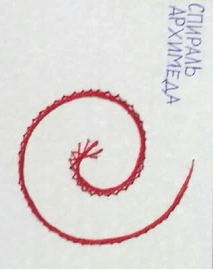 СПИРАЛЬ
АРХИМЕДА